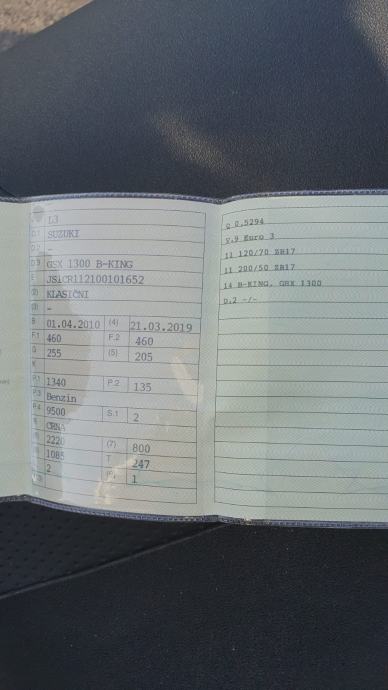 L3
D.1 SUZUKI
D.2 -
D.3 GSX 1300 B-KING
E JS1CR112100101652
(2) KLASIČNI
(3) -
B 01.04.2010 (4) 21.03.2019
F.1 460 F.2 460
G 255 (5) 205
K
P.1 1340 P.2 135
P.3 Benzin
P.4 9500 S.1 2
R CRNA
(6) 2220 (7) 800
1085 T 247
2 1
Q 0,5294
V.9 Euro 3
11 120/70 ZR17
11 200/50 ZR17
14 B-KING, GSX 1300
O.2 -/-